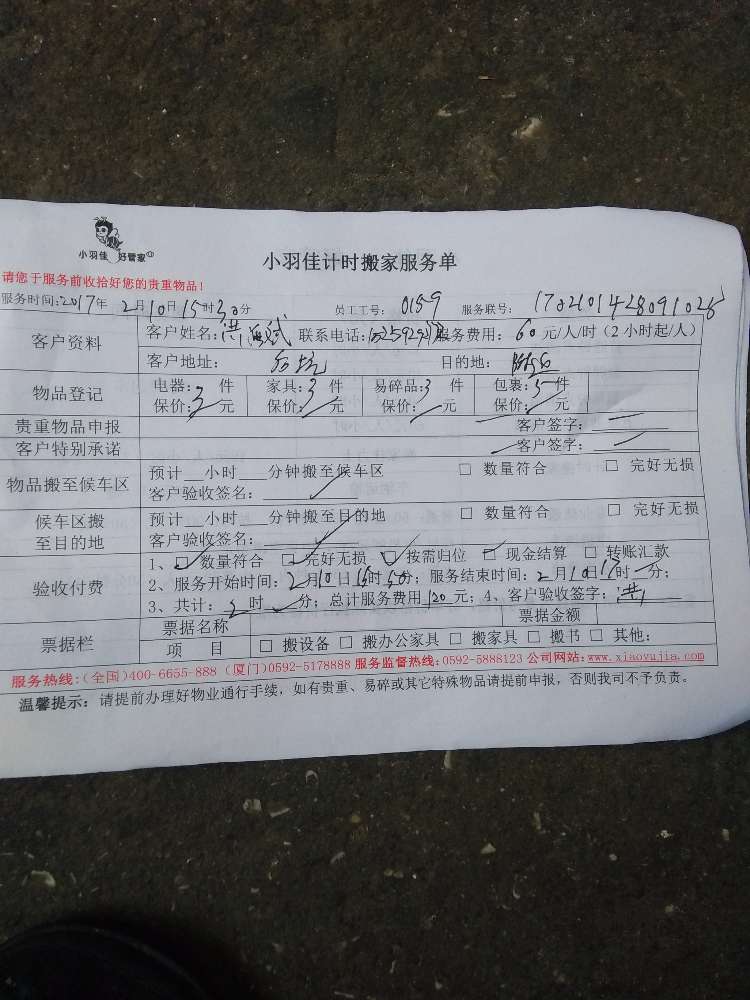 小羽佳 好管家
小羽佳计时搬家服务单
请您于服务前收拾好您的贵重物品！
服务时间：2017年 2月10日15时30分 员工工号： 0159 服务联号：
客户资料 客户姓名：洪 联系电话： 服务费用： 60 元/人/时（2小时起/人）
客户地址： 目的地：
物品登记 电器：3 件 家具：3 件 易碎品：3 件 包裹：5 件
保价： 元 保价： 元 保价： 元 保价： 元
贵重物品申报 客户签字：
客户特别承诺 客户签字：
物品搬至候车区 预计__小时___分钟搬至候车区 □ 数量符合 □ 完好无损
客户验收签名：
候车区搬至目的地 预计__小时___分钟搬至目的地 □ 数量符合 □ 完好无损
客户验收签名：
验收付费 1、□ 数量符合 □ 完好无损 □ 按需归位 □ 现金结算 □ 转账汇款
2、服务开始时间：2月10日15时50分；服务结束时间：2月10日17时 分；
3、共计：2时 分；总计服务费用 120 元；4、客户验收签字：洪
票据栏 票据名称 票据金额
项 目 □ 搬设备 □ 搬办公家具 □ 搬家具 □ 搬书 □ 其他：
服务热线：（全国）400-6655-888（厦门）0592-5178888 服务监督热线：0592-5888123 公司网站：www.xiaoyujia.com
温馨提示：请提前办理好物业通行手续，如有贵重、易碎或其它特殊物品请提前申报，否则我司不予负责。